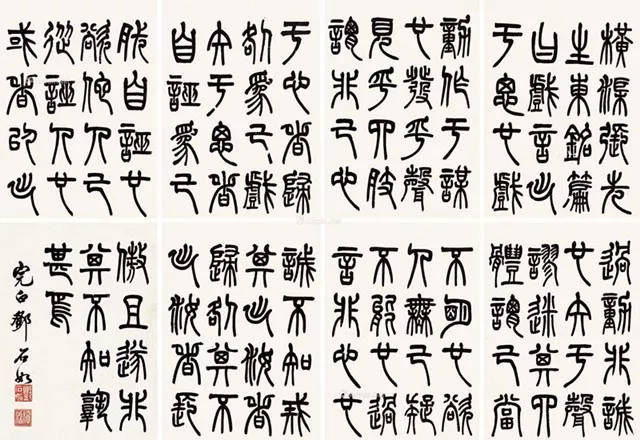 橫渠張先
生東銘篇
曰戲言出
于思也戲
動作于謀
也發乎聲
見乎四肢
謂非己心
不明也欲
人無己疑
不能也過
言非心也
過動非誠
也失于聲
謬迷其四
體謂己當
然自誣也
欲他人己
從誣人也
或者以出
于心者歸
咎為己戲
失于思者
自誣為己
誠不知戒
其出汝者
歸咎其不
出汝者長
傲且遂非
其不知孰
甚焉
完白鄧石如